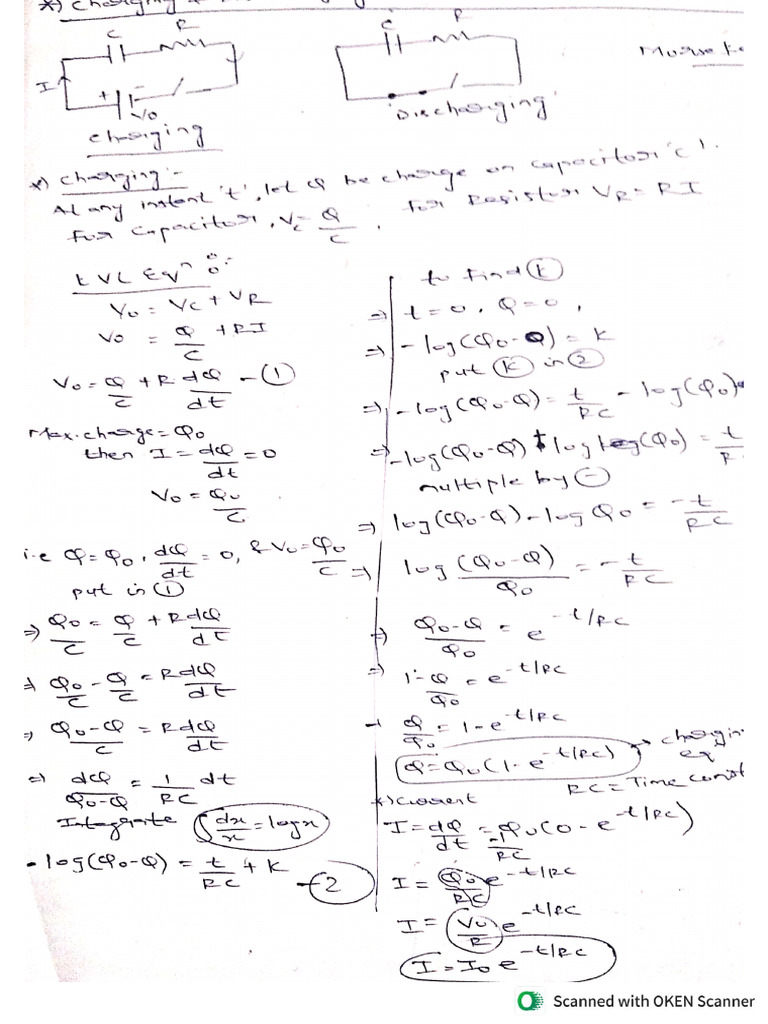 *) Charging &
C R
I
+ -
V0
charging
C R
Discharging
Morse Ke
*) Charging :-
At any instant 't', let Q be charge on capacitor 'c'.
For capacitor, Vc = Q/C , For Resistor VR = RI
KVL Eqn :-
V0 = Vc + VR
V0 = Q/C + RI
V0 = Q/C + R dQ/dt - ①
Max. charge = Q0
then I = dQ/dt = 0
V0 = Q0/C
i.e Q = Q0, dQ/dt = 0, & V0 = Q0/C
put in ①
=> Q0/C = Q/C + R dQ/dt
=> Q0/C - Q/C = R dQ/dt
=> Q0-Q/C = R dQ/dt
=> dQ/Q0-Q = 1/RC dt
Integrate ∫dx/x = log x
-log(Q0-Q) = t/RC + K - ②
to find K
=> t=0, Q=0,
=> -log(Q0-Q) = K
put K in ②
=> -log(Q0-Q) = t/RC - log(Q0)
=> -log(Q0-Q) + log(Q0) = t/R
multiple by -
=> log(Q0-Q) - log Q0 = -t/RC
=> log (Q0-Q)/Q0 = -t/RC
=> Q0-Q/Q0 = e^-t/RC
=> 1-Q/Q0 = e^-t/RC
Q/Q0 = 1-e^-t/RC
Q = Q0(1-e^-t/RC) → chargin
eq
RC = Time const
*) Current
I = dQ/dt = Q0(0-e^-t/RC) -1/RC
I = Q0/RC e^-t/RC
I = V0/R e^-t/RC
I = I0 e^-t/RC
Scanned with OKEN Scanner